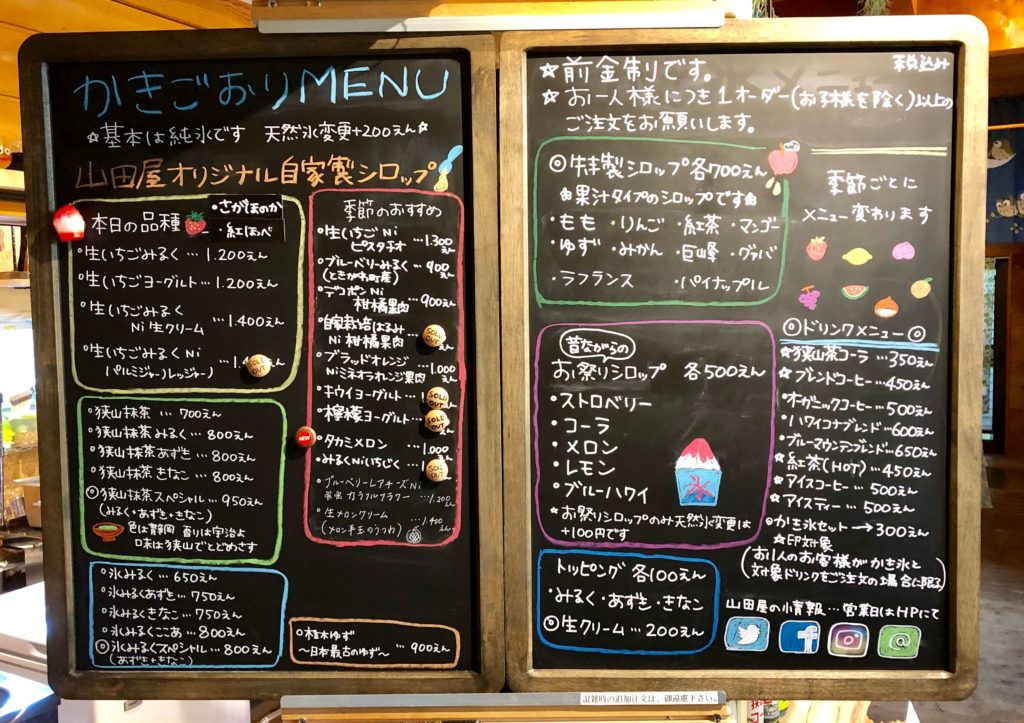 かきごおりMENU
☆基本は純氷です 天然氷変更+200えん☆
山田屋オリジナル自家製シロップ
本日の品種
・さがほのか
・紅ほっぺ
・生いちごみるく…1.200えん
・生いちごヨーグルト…1.200えん
・生いちごみるく
Ni 生クリーム …1.400えん
・生いちごみるくNi
(パルミジャーノレッジャーノ) …1.4 えん
SOLD OUT
・狭山抹茶 … 700えん
・狭山抹茶みるく … 800えん
・狭山抹茶あずき … 800えん
・狭山抹茶きなこ … 800えん
◎狭山抹茶スペシャル … 950えん
(みるく+あずき+きなこ)
色は静岡 香りは宇治よ
味は狭山でとどめさす
・氷みるく … 650えん
・氷みるくあずき … 750えん
・氷みるくきなこ … 750えん
・氷みるくここあ … 800えん
◎氷みるくスペシャル … 800えん
(あずき+きなこ)
季節のおすすめ
・生いちごNi
ピスタチオ …1.300えん
・ブルーベリーみるく … 900えん
(ときがわ町産)
・デコポンNi
柑橘果肉 …900えん
・自家栽培はるみ
Ni 柑橘果肉
SOLD OUT
・ブラッドオレンジ
Niミネオラオレンジ果肉 …1.000えん
・キウイヨーグルト
SOLD OUT
・檸檬ヨーグルト
SOLD OUT
NEW
・タカミメロン …1.000えん
・みるくNiいちじく …1.
SOLD OUT
・ブルーベリーレアチーズNi
カラフルフラワー …1.200えん
・生メロンクリーム
(メロン半玉のうつわ) …1.400えん
・桂木ゆず
~日本最古のゆず~ … 900えん
☆前金制です。
税込み
☆お一人様につき1オーダー(お子様を除く)以上の
ご注文をお願いします。
◎特製シロップ各700えん
果汁タイプのシロップです
・もも ・りんご ・紅茶 ・マンゴー
・ゆず ・みかん ・巨峰 ・グァバ
・ラフランス ・パイナップル
季節ごとに
メニュー変わります
昔ながらの
お祭りシロップ 各500えん
・ストロベリー
・コーラ
・メロン
・レモン
・ブルーハワイ
氷
☆お祭りシロップのみ天然氷変更は
+100円です
トッピング 各100えん
・みるく・あずき・きなこ
◎生クリーム … 200えん
◎ドリンクメニュー◎
☆狭山茶コーラ … 350えん
☆ブレンドコーヒー …450えん
・オーガニックコーヒー …500えん
・ハワイコナブレンド …600えん
・ブルーマウンテンブレンド…650えん
☆紅茶(HOT) …450えん
☆アイスコーヒー … 500えん
☆アイスティー … 500えん
◎かき氷セット → 300えん
☆印対象
(お1人のお客様がかき氷と
対象ドリンクをご注文の場合に限る)
山田屋の情報…営業日はHPにて
混雑時の追加注文は、御遠慮下さい。